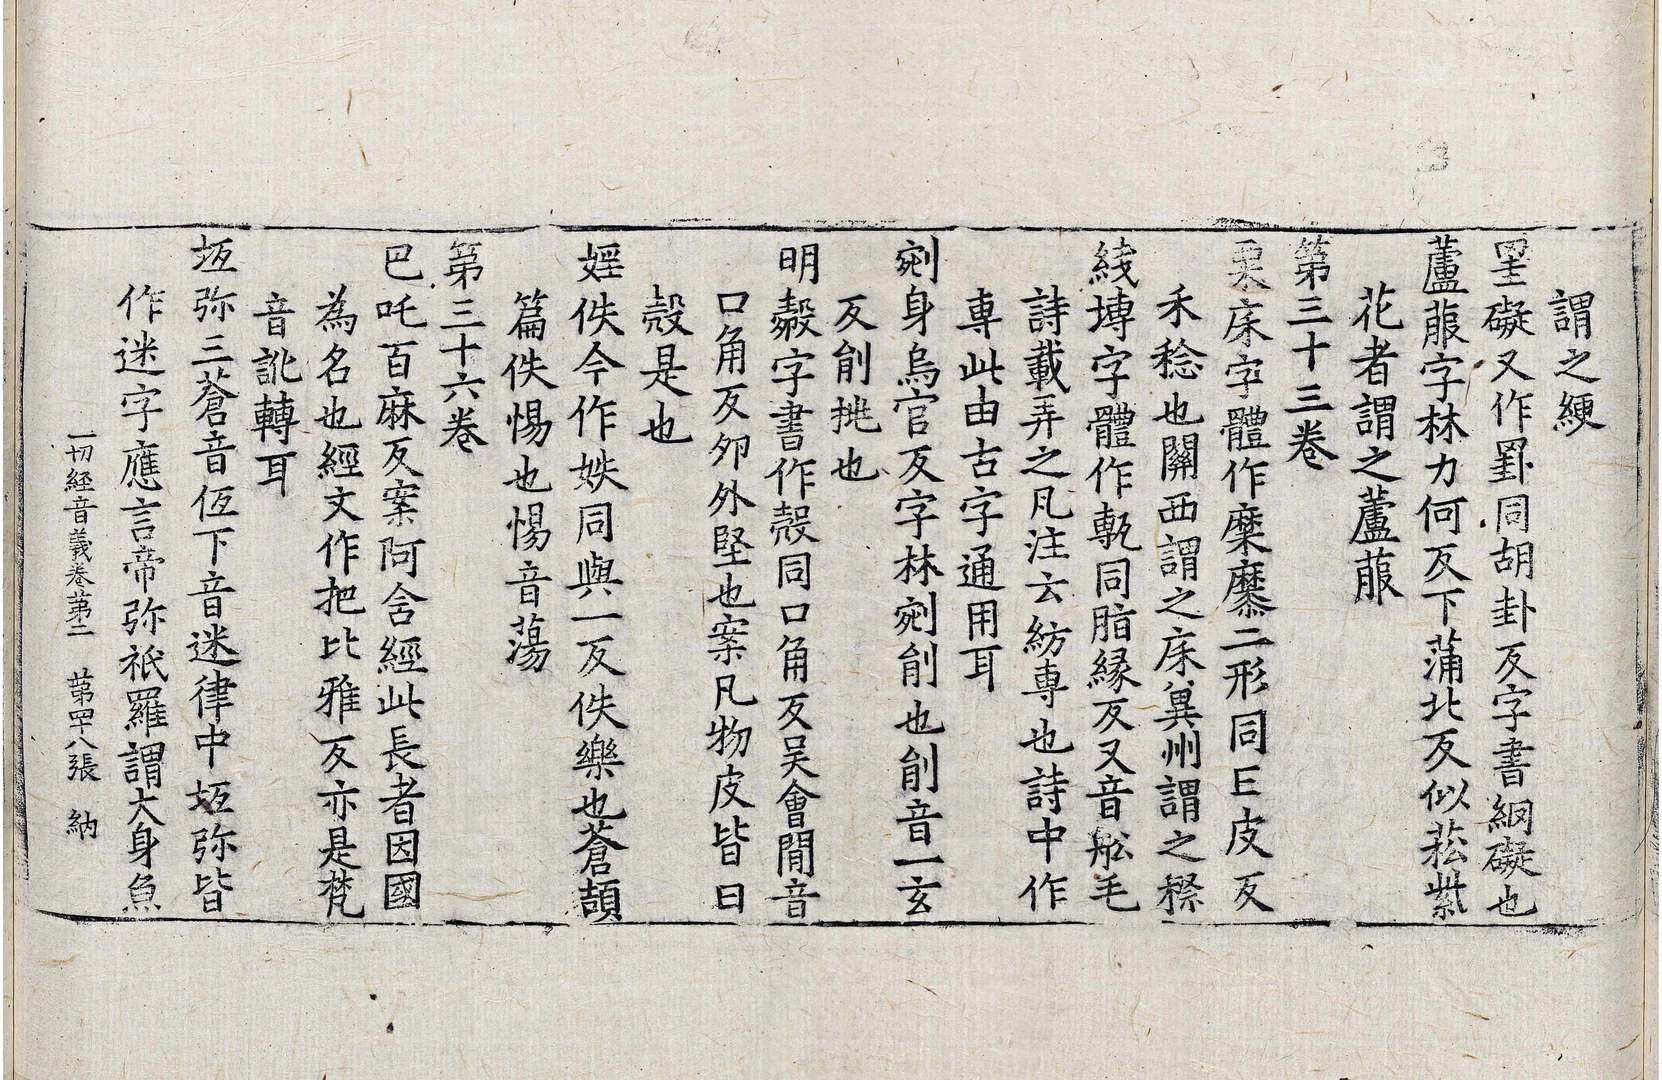 謂之綆
罣礙又作罫同胡卦反字書網礙也
蘆菔字林力何反下蒲北反似菘紫
花者謂之蘆菔
第三十三卷
粟床字體作穈䵚二形同亡皮反
禾稔也關西謂之床兾州謂之穄
綫塼字體作甎同脂縁反又音舩毛
詩載弄之凡注云紡専也詩中作
専此由古字通用耳
剜身烏官反字林剜削也削音一玄
反削挑也
明㲉字書作殼同口角反吴會間音
口角反夘外堅也案凡物皮皆曰
殼是也
婬佚今作妷同與一反佚樂也蒼頡
篇佚惕也惕音蕩
第三十六卷
巴吒百麻反案阿含經此長者因國
為名也經文作把比雅反亦是梵
音訛轉耳
坻弥三蒼音低下音迷律中坻弥皆
作迷字應言帝弥祇羅謂大身魚
一切経音義卷第二　第四十八張　納